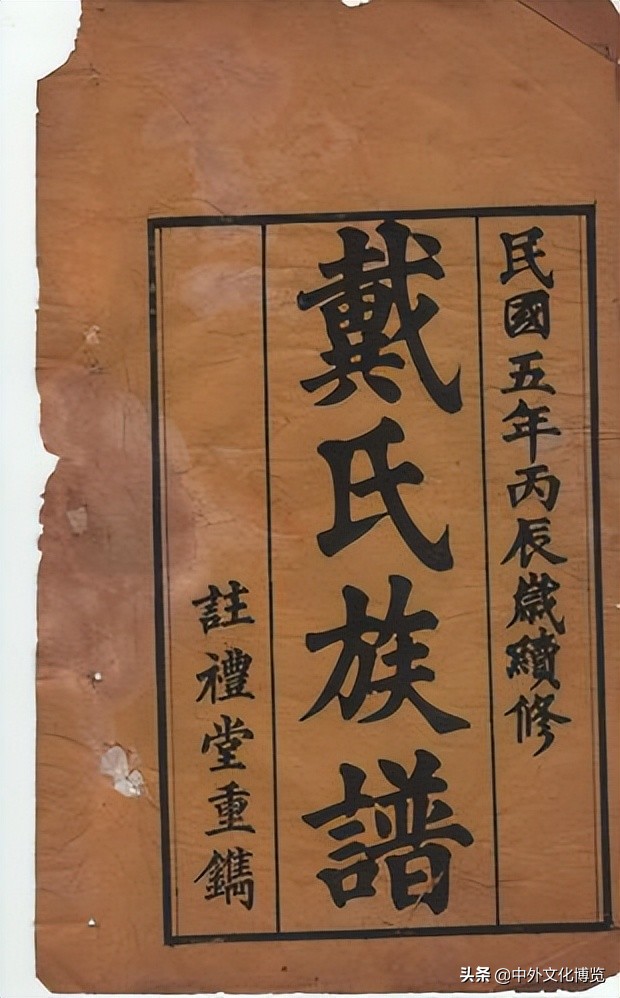 民國五年丙辰歲續修
戴氏族譜
註禮堂重鐫
头条 @中外文化博览